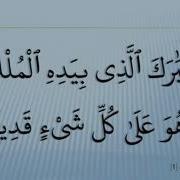 بَٰرَكَ ٱلَّذِى بِيَدِهِ ٱلْمُلْ
هُوَ عَلَىٰ كُلِّ شَىْءٍ قَدِي